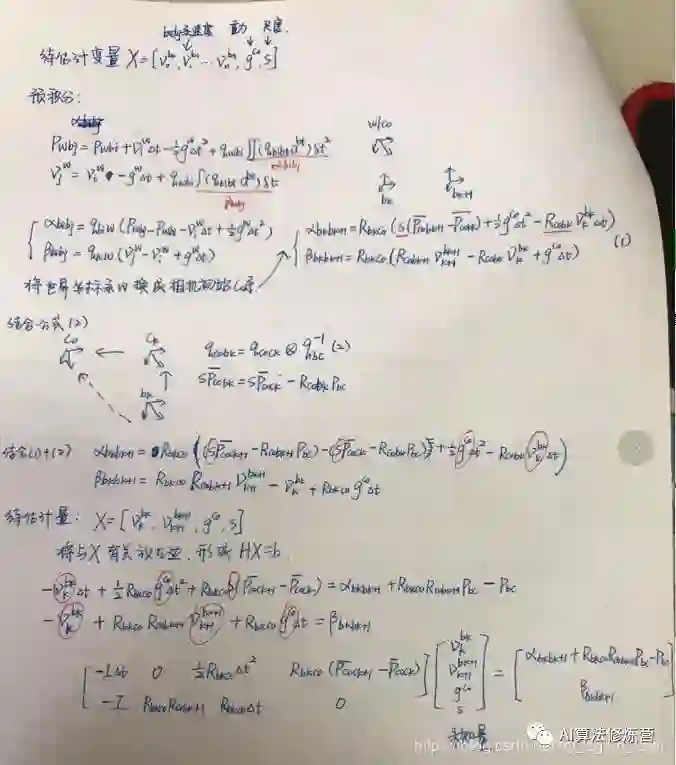 body系速度 重力 尺度
待估计变量 X=[V₀^{b₀}, V₁^{b₁} ⋯ Vₙ^{bₙ}, g^{c₀}, s]
预积分:
α_{bibj}
P_{wbj} = P_{wbi} + V_i^w Δt - ½g^wΔt² + q_{wbi}∬(q_{bibt} a^{bt})δt²
w/c₀
α_{bibj}
V_j^w = V_i^w - g^wΔt + q_{wbi}∫(q_{bibt} a^{bt})δt
b_k b_{k+1}
β_{bibj}
α_{bibj} = q_{biw}(P_{wbj} - P_{wbi} - V_i^wΔt + ½g^wΔt²)
α_{bkbk+1} = R_{bkc0}(s(P̄_{c0bk+1} - P̄_{c0bk}) + ½g^{c0}Δt² - R_{c0bk}V_k^{bk}Δt)
β_{bibj} = q_{biw}(V_j^w - V_i^w + g^wΔt)
β_{bkbk+1} = R_{bkc0}(R_{c0bk+1}V_{k+1}^{bk+1} - R_{c0bk}V_k^{bk} + g^{c0}Δt)
(1)
将世界坐标系w换成相机初始C₀系
结合公式(2)
C₀ C_k
q_{c0bk} = q_{c0ck} ⊗ q_{bc}^{-1} (2)
b_k
sP̄_{c0bk} = sP̄_{c0ck} - R_{c0bk}P_{bc}
结合(1)+(2) α_{bkbk+1} = R_{bkc0}((sP̄_{c0ck+1} - R_{c0bk+1}P_{bc}) - (sP̄_{c0ck} - R_{c0bk}P_{bc}) + ½g^{c0}Δt² - R_{c0bk}V_k^{bk}Δt)
β_{bkbk+1} = R_{bkc0}R_{c0bk+1}V_{k+1}^{bk+1} - V_k^{bk} + R_{bkc0}g^{c0}Δt
待估计量: X=[V_k^{bk}, V_{k+1}^{bk+1}, g^{c0}, s]
将与X有关放在左, 形成 HX=b
-V_k^{bk}Δt + ½R_{bkc0}g^{c0}Δt² + R_{bkc0}s(P̄_{c0ck+1} - P̄_{c0ck}) = α_{bkbk+1} + R_{bkc0}R_{c0bk+1}P_{bc} - P_{bc}
-V_k^{bk} + R_{bkc0}R_{c0bk+1}V_{k+1}^{bk+1} + R_{bkc0}g^{c0}Δt = β_{bkbk+1}
[-IΔt 0 ½R_{bkc0}Δt² R_{bkc0}(P̄_{c0ck+1} - P̄_{c0ck})] [V_k^{bk} V_{k+1}^{bk+1} g^{c0} s] = [α_{bkbk+1} + R_{bkc0}R_{c0bk+1}P_{bc} - P_{bc}]
[-I R_{bkc0}R_{c0bk+1} R_{bkc0}Δt 0] [β_{bkbk+1}]
AI算法修炼营